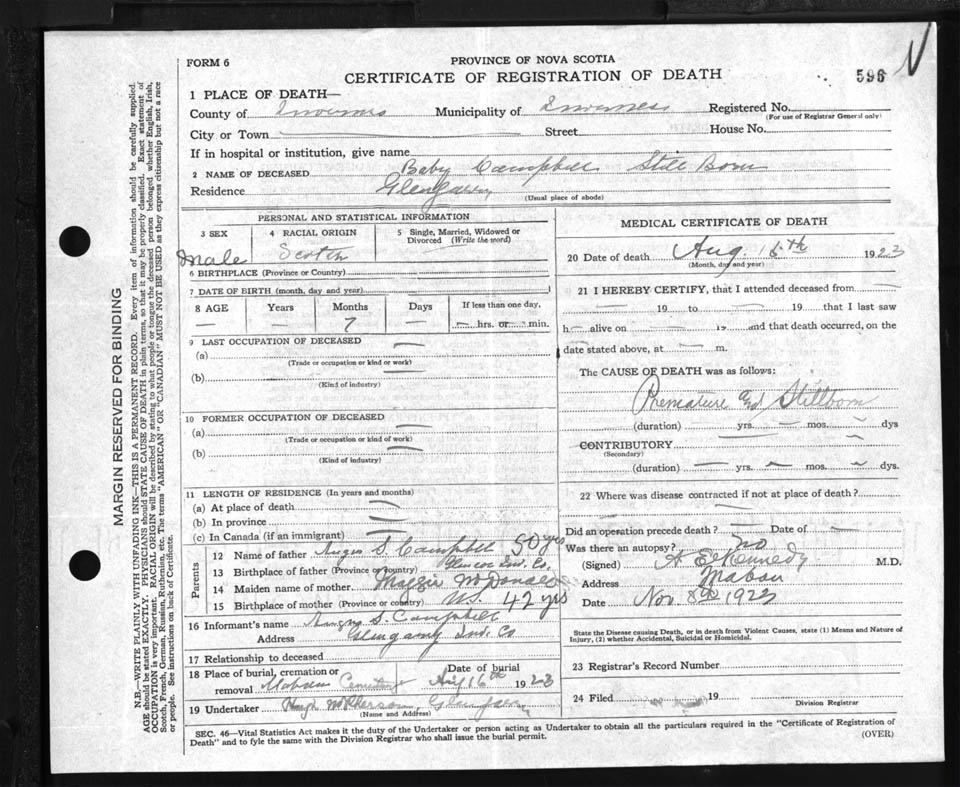 FORM 6
PROVINCE OF NOVA SCOTIA
CERTIFICATE OF REGISTRATION OF DEATH
596
1 PLACE OF DEATH—
County of Inverness Municipality of Inverness Registered No.
(For use of Registrar General only)
City or Town Street House No.
If in hospital or institution, give name
2 NAME OF DECEASED Baby Campbell Still Born
Residence Glengarry
(Usual place of abode)
PERSONAL AND STATISTICAL INFORMATION
3 SEX Male
4 RACIAL ORIGIN Scotch
5 Single, Married, Widowed or Divorced (Write the word)
6 BIRTHPLACE (Province or Country)
7 DATE OF BIRTH (month, day and year)
8 AGE Years Months Days If less than one day,
— — 7 — — hrs. or — min.
9 LAST OCCUPATION OF DECEASED —
(a)
(Trade or occupation or kind or work)
(b) —
(Kind of industry)
10 FORMER OCCUPATION OF DECEASED
(a) —
(Trade or occupation or kind of work)
(b) —
(Kind of industry)
11 LENGTH OF RESIDENCE (In years and months)
(a) At place of death —
(b) In province —
(c) In Canada (if an immigrant) —
Parents
12 Name of father Angus S. Campbell 50 yrs
13 Birthplace of father (Province or country) Glencoe Inv. Co.
14 Maiden name of mother Maggie McDonald
15 Birthplace of mother (Province or country) 42 yrs
16 Informant's name Angus S. Campbell
Address Glengarry Inv. Co
17 Relationship to deceased
18 Place of burial, cremation or removal Mabou Cemetery Date of burial Aug 16th 1923
19 Undertaker Hugh McPherson, Glengarry
(Name and Address)
MEDICAL CERTIFICATE OF DEATH
20 Date of death Aug. 15th 1923
(Month, day and year)
21 I HEREBY CERTIFY, that I attended deceased from —
— 19 — to — 19 — that I last saw
h — alive on — 19 — and that death occurred, on the
date stated above, at — m.
The CAUSE OF DEATH was as follows:
Premature and Stillborn
(duration) — yrs. — mos. — dys
CONTRIBUTORY —
(Secondary)
(duration) — yrs. — mos. — dys.
22 Where was disease contracted if not at place of death?
Did an operation precede death? — Date of —
Was there an autopsy? no
(Signed) A E Kennedy M.D.
Address Mabou
Date Nov 8th 1923
State the Disease causing Death, or in death from Violent Causes, state (1) Means and Nature of
Injury, (2) whether Accidental, Suicidal or Homicidal.
23 Registrar's Record Number
24 Filed 19
Division Registrar
SEC. 46—Vital Statistics Act makes it the duty of the Undertaker or person acting as Undertaker to obtain all the particulars required in the "Certificate of Registration of
Death" and to fyle the same with the Division Registrar who shall issue the burial permit.
(OVER)
MARGIN RESERVED FOR BINDING
N.B.—WRITE PLAINLY WITH UNFADING INK—THIS IS A PERMANENT RECORD. Every item of information should be carefully supplied.
AGE should be stated EXACTLY. PHYSICIANS should STATE CAUSE OF DEATH in plain terms, so that it may be properly classified. Exact statement of
OCCUPATION is very important. RACIAL ORIGIN will be described by stating to what people or tongue the deceased person belonged whether English, Irish,
Scotch, French, German, Russian, Ruthenian, etc. The terms "AMERICAN" OR "CANADIAN" MUST NOT BE USED as they express citizenship but not a race
or people. See instructions on back of Certificate.